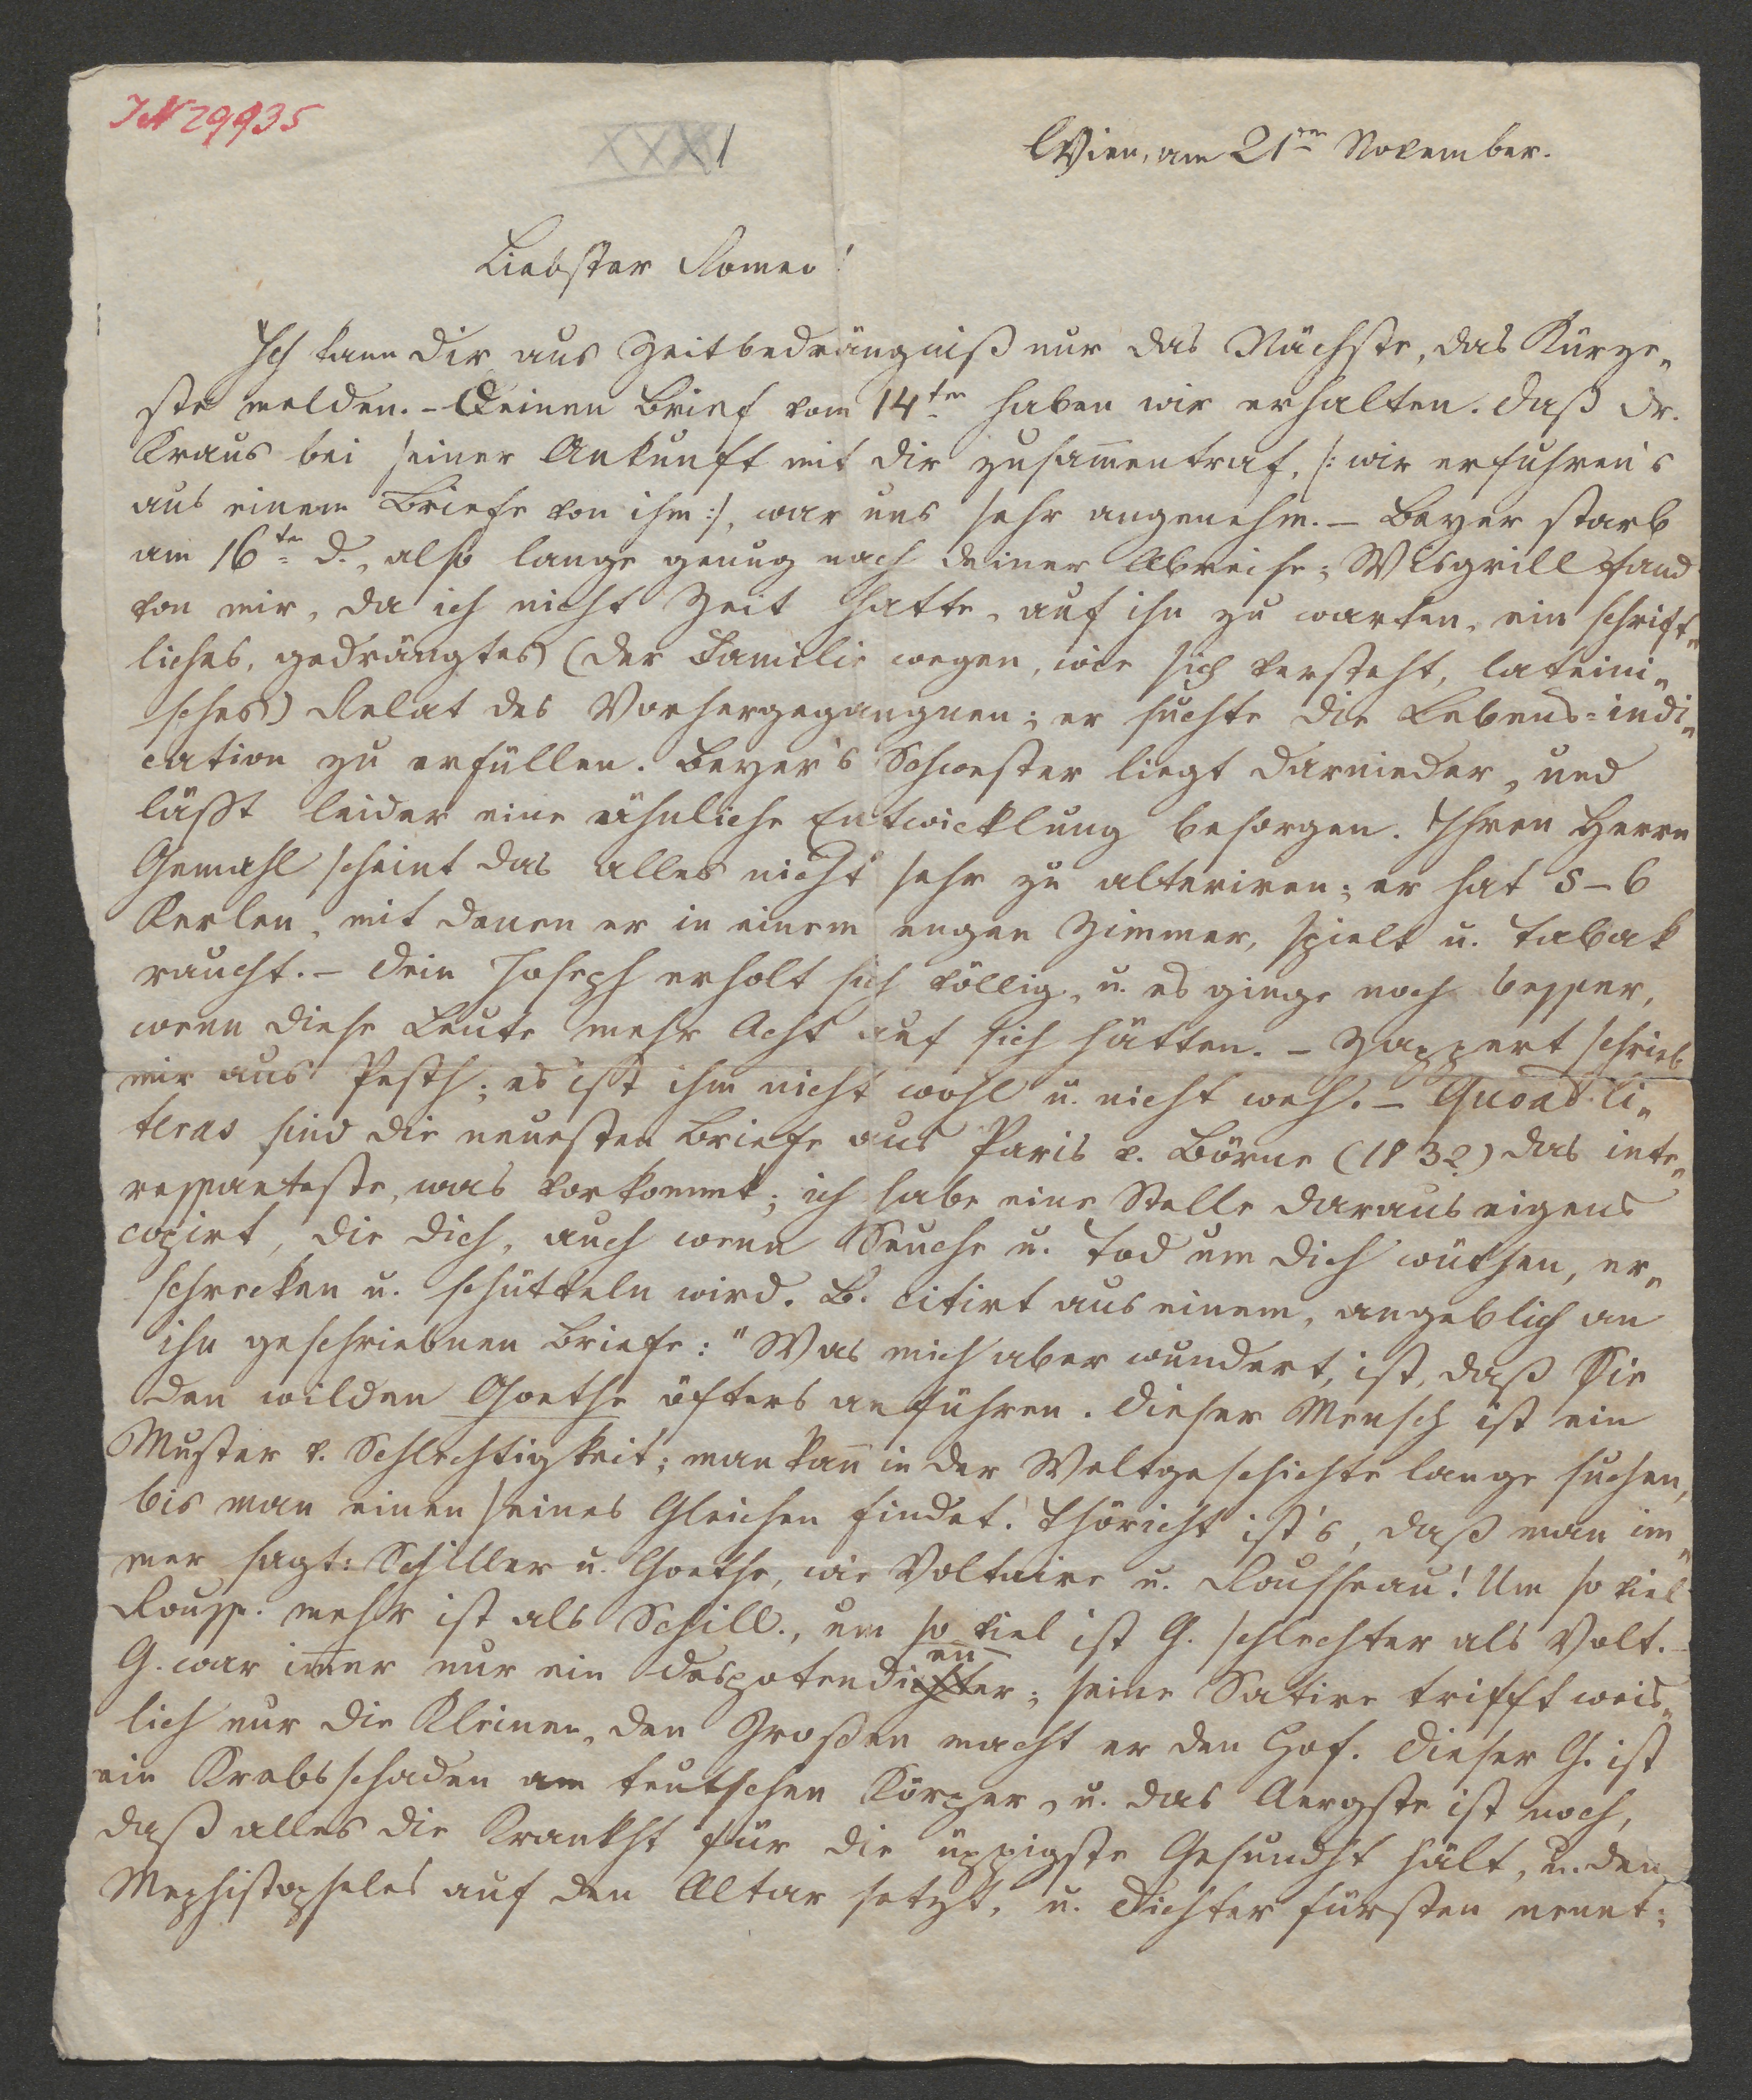 IN 29935
XXXI
Wien, am 21ten November.
Liebster Romeo!
Ich kann Dir aus Zeitbedrängniß nur das Nächste, das Kürze„
ste melden. – Deinen Brief vom 14ten haben wir erhalten. Daß Dr.
Kraus bei seiner Ankunft mit dir zusam̅entraf, /: wir erfuhren's
aus einem Briefe von ihm :/, war uns sehr angenehm. – Beyer starb
am 16ten d., also lange genug nach deiner Abreise; Wisgrill fand
von mir, da ich nicht Zeit hatte, auf ihn zu warten, ein schrift„
liches, gedrängtes (der Familie wegen, wie sich versteht, lateini„
sches) Relat des Vorhergegangnen; er suchte die Lebens=indi„
cation zu erfüllen. Beyer's Schwester liegt darnieder, und
läßt leider eine ähnliche Entwicklung besorgen. Ihren Herrn
Gemahl scheint das alles nicht sehr zu alteriren; er hat 5–6
Kerlen, mit denen er in einem engen Zimmer, spielt u. Tabak
raucht. – Dein Joseph erholt sich völlig, u. es ginge noch besser,
wenn diese Leute mehr Acht auf sich hätten. – Zappert schrieb
mir aus Pesth; es ist ihm nicht wohl u. nicht weh. – Quoad li„
teras sind die neuesten Briefe aus Paris v. Börne (1832) das inte„
ressanteste, was vorkommt; ich habe eine Stelle daraus eigens
copirt, die dich, auch wenn Seuche u. Tod um dich wüthen, er„
schrecken u. schütteln wird. B. citirt aus einem, angeblich an
ihn geschriebnen Briefe: "Was mich aber wundert, ist, daß Sie
den wilden Goethe öfters anführen. Dieser Mensch ist ein
Muster v. Schlechtigkeit; man kan̅ in der Weltgeschichte lange suchen,
bis man einen seines Gleichen findet. Thöricht ist's, daß man im„
mer sagt: Schiller u. Goethe, wie Voltaire u. Rousseau! Um so viel
Rouss. mehr ist als Schill., um so viel ist G. schlechter als Volt. –
G. war im̅er nur ein Despotendiener; seine Satire trifft weis„
lich nur die Kleinen, den Großen macht er den Hof. Dieser G. ist
ein Krebsschaden am teutschen Körper, u. das Aergste ist noch,
daß alles die Krankht für die üppigste Gesundht hält, u. den
Mephistopheles auf den Altar setzt, u. Dichterfürsten nennt;